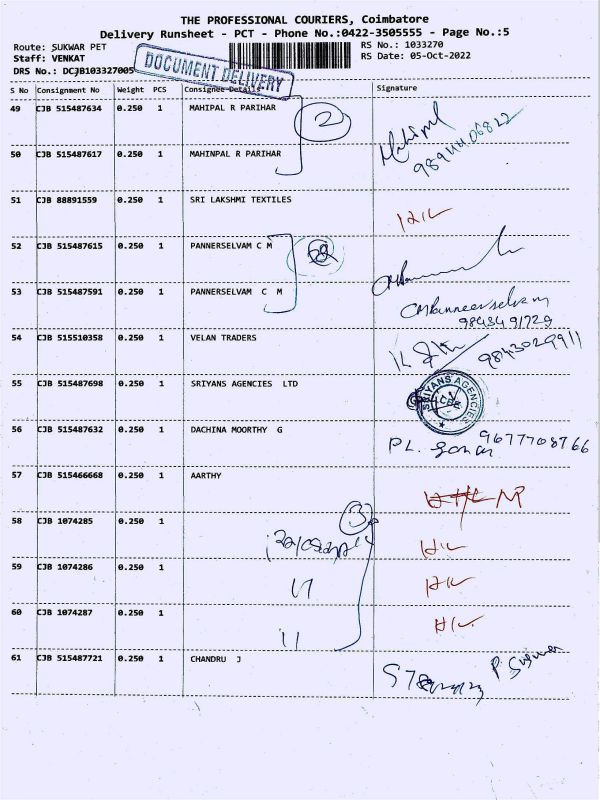 THE PROFESSIONAL COURIERS, Coimbatore
Delivery Runsheet - PCT - Phone No.:0422-3505555 - Page No.:5
Route: SUKWAR PET
RS No.: 1033270
Staff: VENKAT
RS Date: 05-Oct-2022
DRS No.: DCJB103327005
DOCUMENT DELIVERY
S No Consignment No Weight PCS Consignee Details Signature
49 CJB 515487634 0.250 1 MAHIPAL R PARIHAR
2
Mahipal
9894406822
50 CJB 515487617 0.250 1 MAHINPAL R PARIHAR
51 CJB 88891559 0.250 1 SRI LAKSHMI TEXTILES
52 CJB 515487615 0.250 1 PANNERSELVAM C M
53 CJB 515487591 0.250 1 PANNERSELVAM C M
CMPanneerselvam
9843491729
54 CJB 515510358 0.250 1 VELAN TRADERS
9843029911
55 CJB 515487698 0.250 1 SRIYANS AGENCIES LTD
SRIYANS AGENCIES
CBE
56 CJB 515487632 0.250 1 DACHINA MOORTHY G
PL.
9677708766
57 CJB 515466668 0.250 1 AARTHY
58 CJB 1074285 0.250 1
3
59 CJB 1074286 0.250 1
60 CJB 1074287 0.250 1
61 CJB 515487721 0.250 1 CHANDRU J